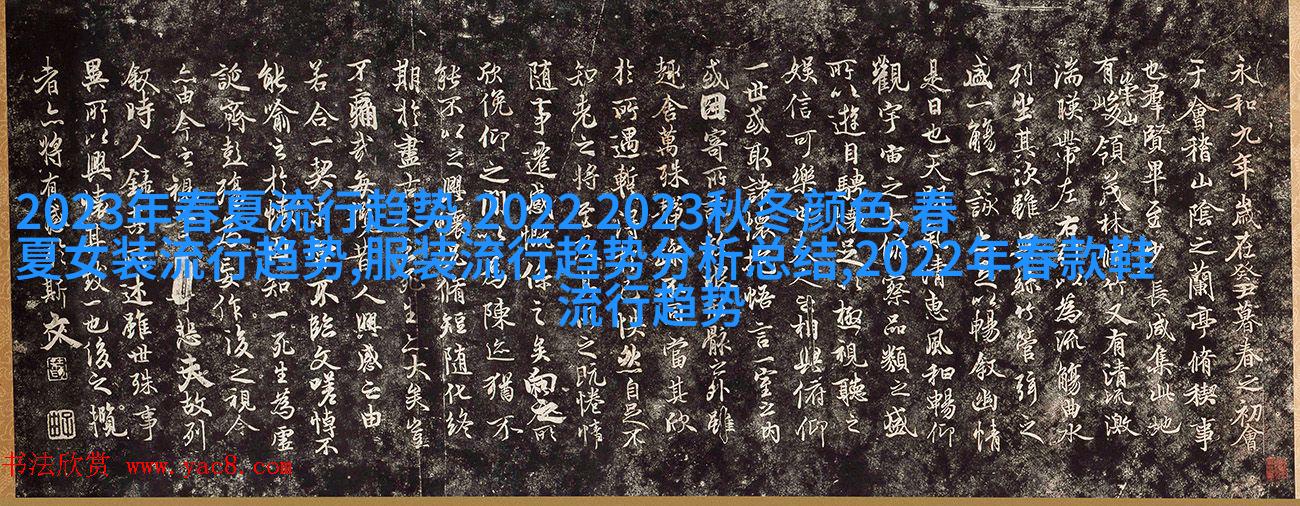 永和九年歲在癸丑暮春之初會
于會稽山陰之蘭亭脩稧事
也羣賢畢至少長咸集此地
有崇山峻領茂林脩竹又有清流激
湍暎帶左右引以為流觴曲水
列坐其次雖無絲竹管弦之
盛一觴一詠亦足以暢敘幽情
是日也天朗氣清惠風和暢仰
觀宇宙之大俯察品類之盛
所以遊目騁懷足以極視聽之
娛信可樂也夫人之相與俯仰
一世或取諸懷抱悟言一室之內
或因寄所託放浪形骸之外雖
趣舍萬殊靜躁不同當其欣
於所遇暫得於己快然自足不
知老之將至及其所之既惓情
隨事遷感慨係之矣向之所
欣俛仰之閒以為陳迹猶不
能不以之興懷況脩短隨化終
期於盡古人云死生亦大矣豈
不痛哉每攬昔人興感之由
若合一契未嘗不臨文嗟悼不
能喻之於懷固知一死生為虛
誕齊彭殤為妄作後之視今
亦由今之視昔悲夫故列
敘時人錄其所述雖世殊事
異所以興懷其致一也後之攬
者亦將有感於斯文
2023年春夏流行趋势,2022 2023秋冬颜色,春
夏女装流行趋势,服装流行趋势分析总结,2022年春款鞋
流行趋势
书法欣赏 www.yac8.com